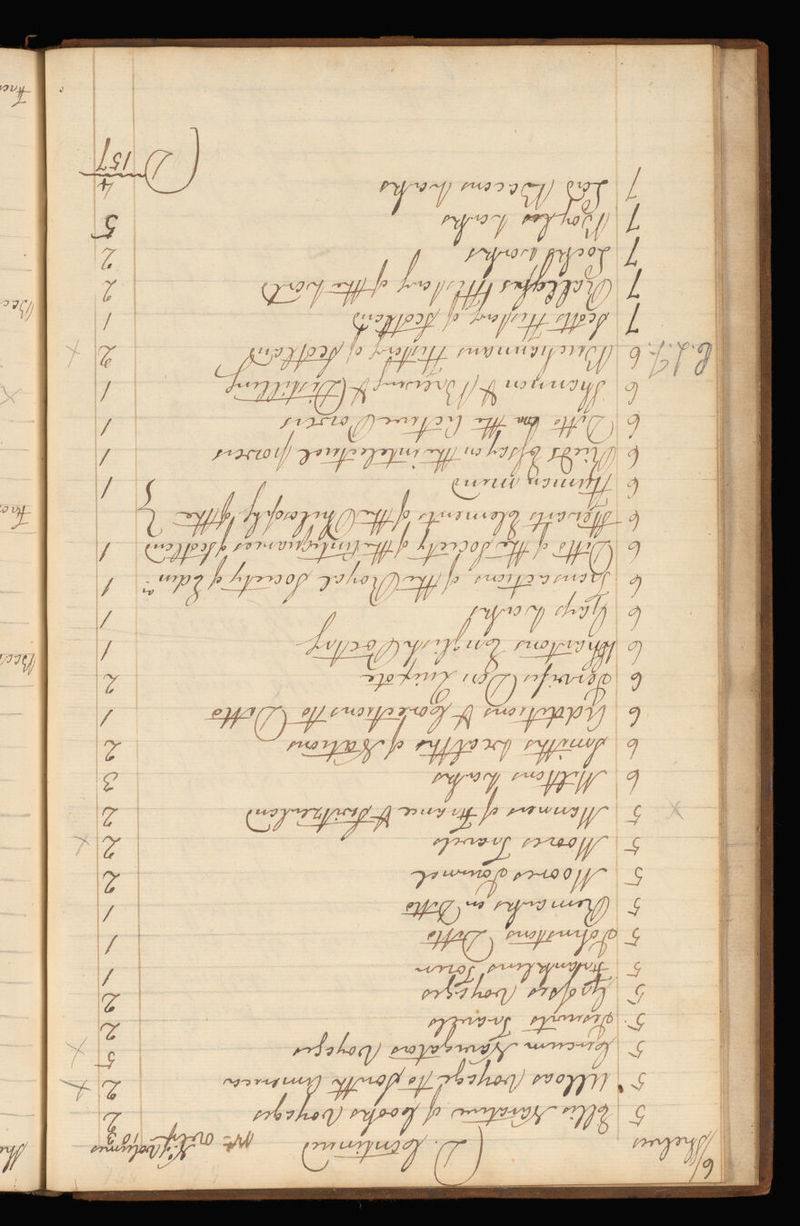 6
Shelves D. Continued No of Volumes
5 Ellis Narative of Cooks Voyages 2
5 Ulloas Voyage to South America 2 X
5 Circum Navigators Voyages 5 X
5 Travells 2
5 Groses Voyages 2
5 Franklins Tour 1
5 Johnstons Ditto 1
5 Remarks on Ditto 1
5 Moores Journel 2
5 Moores Travels 2 X
X 5 Manners of France & Switzerland 2
6 Miltons Works 3
6 Smiths Wealths of Nations 2
6 Additions & Corections tto Ditto 1
6 Jarvises Don Quixote 2
6 Whartons English Poetry 1
6 Gays Works 1
6 Transactions of the Royal Society of Edinr 1
6 Ditto of the Society of the Antiquaries of Scotland 1
6 Stewarts Elements of the Philosophy of the
6 Human mind } 1
6 Rieds Essay on the intelectual powers 1
6 Ditto on the Active Powers 1
6 Shannon & Brewing & Distilling 1
6 Buchannans History of Scotland 2 X
7 Scotts History of Scotland 1
7 Ralleghs History of the World 2
7 Locks works 2
7 Boyles works 5
7 Lord Bacons works 4
D 157